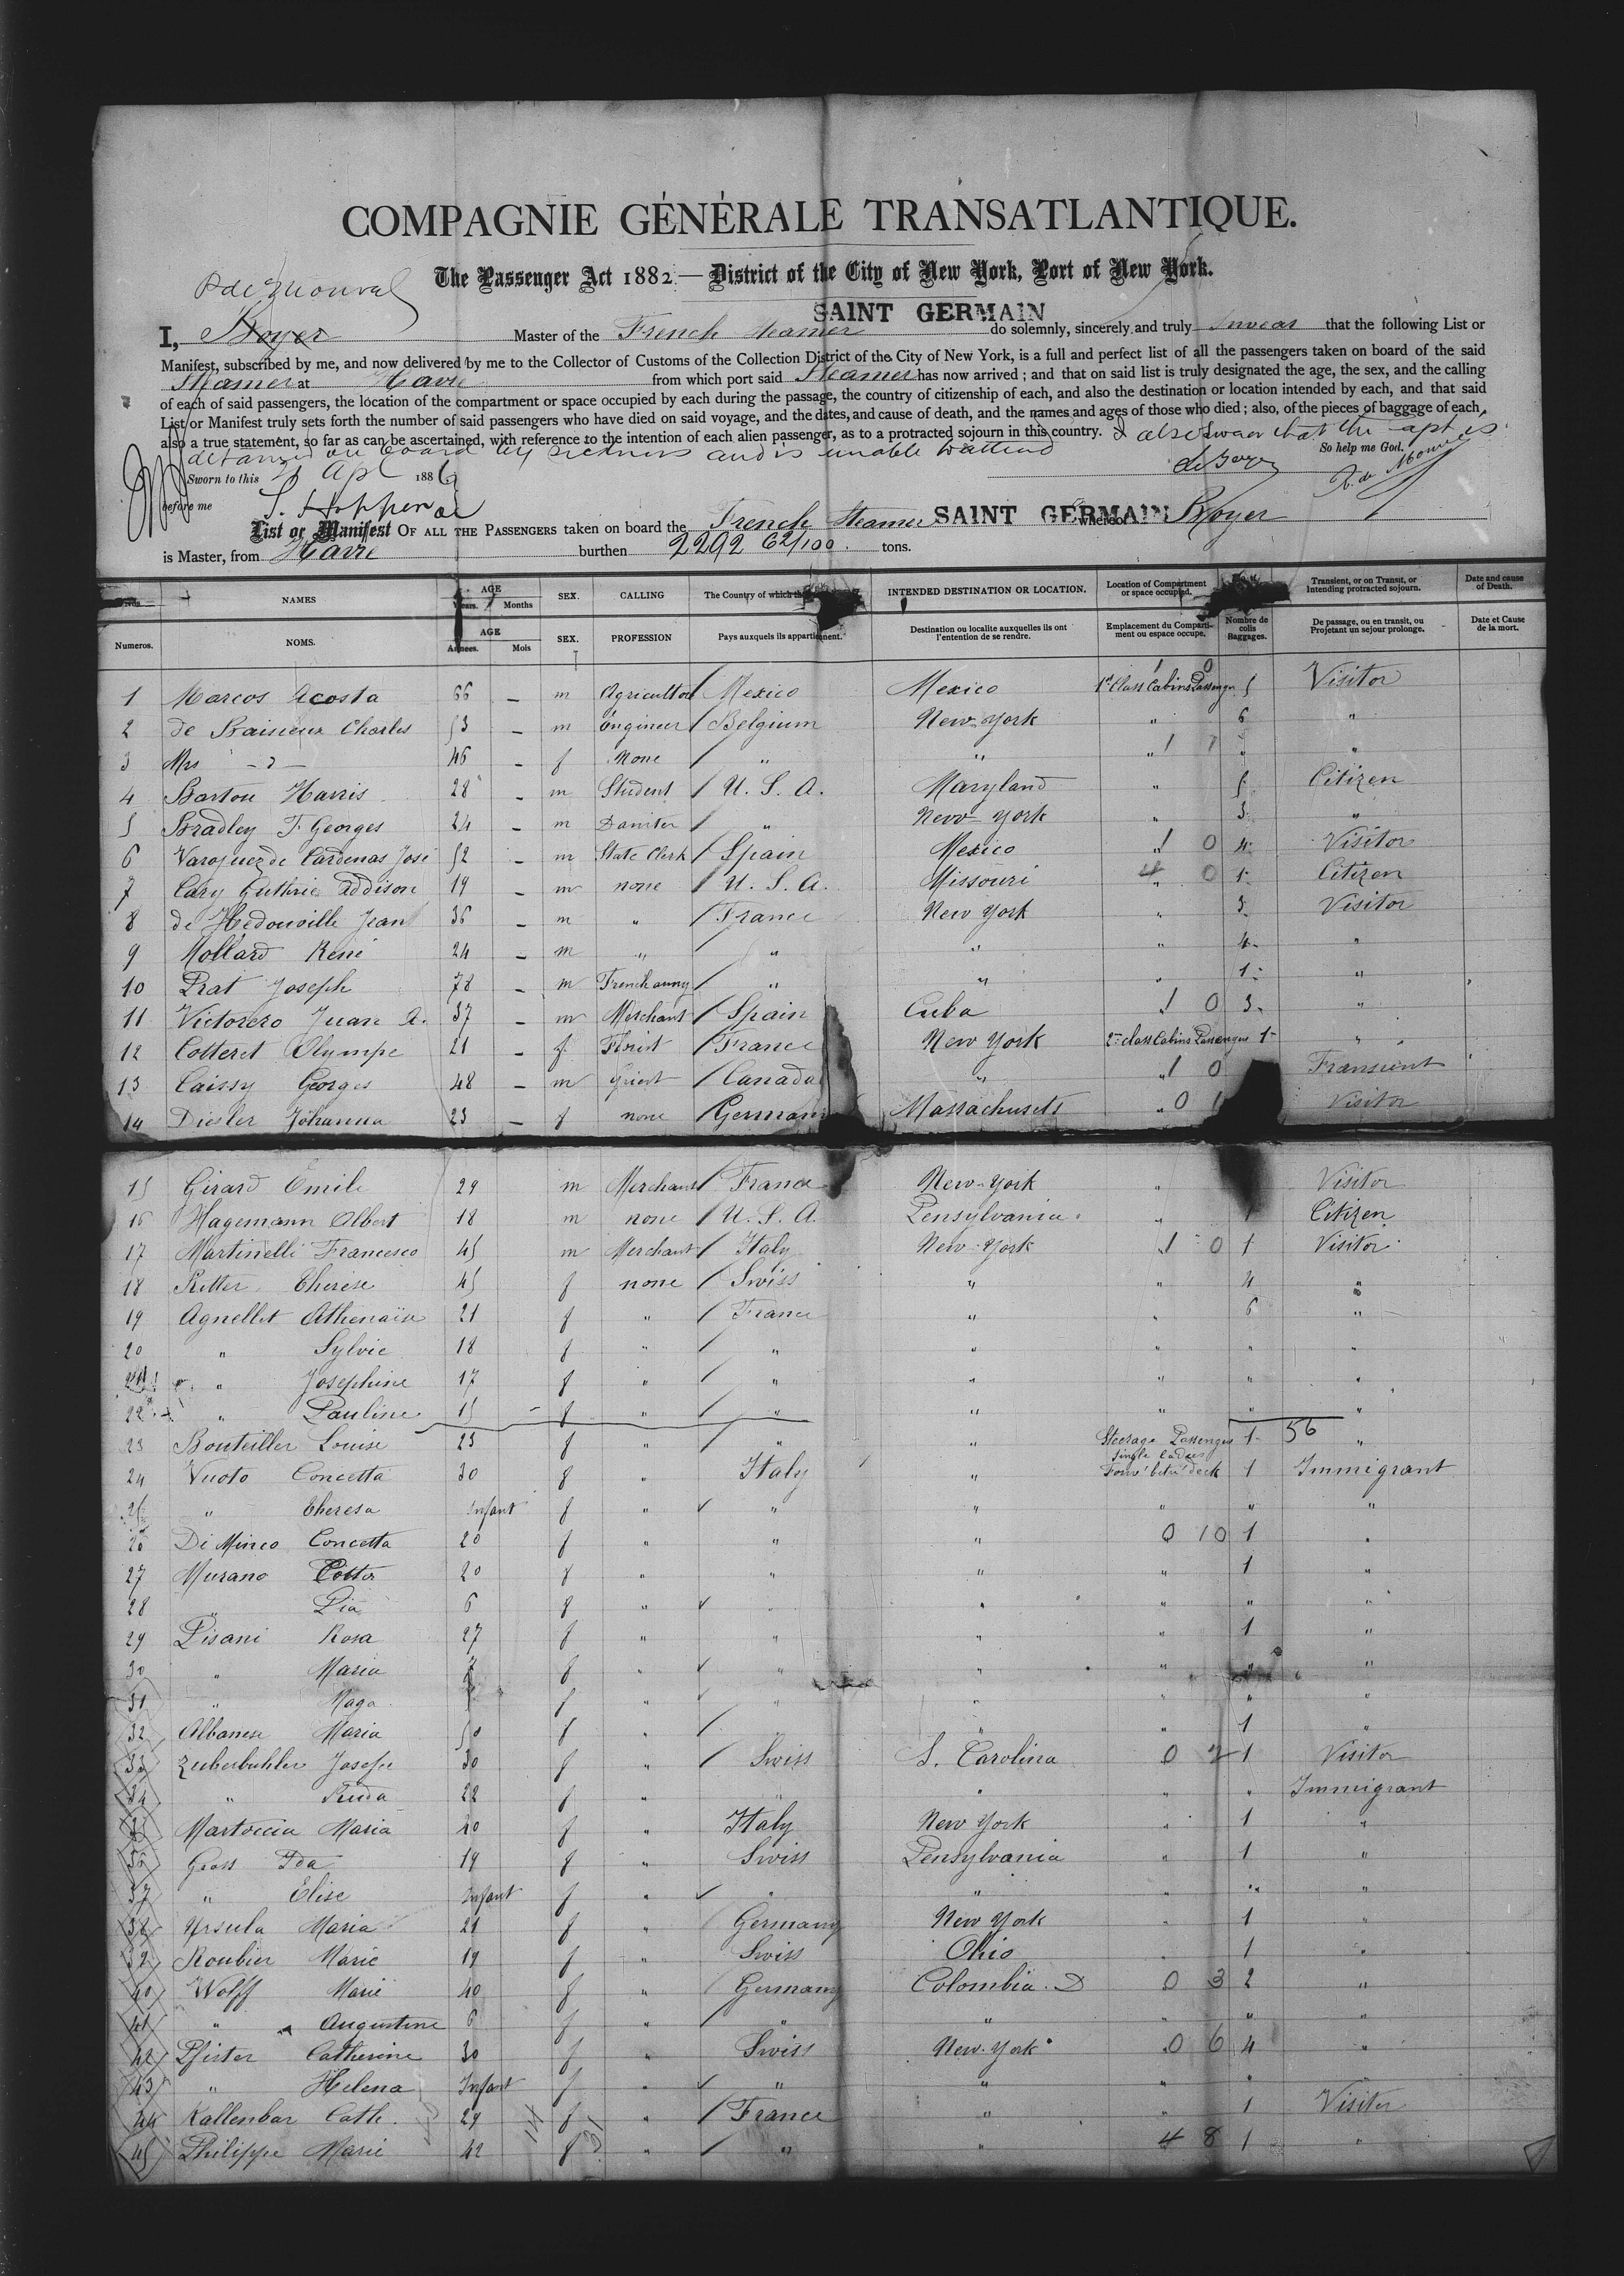 COMPAGNIE GÉNÉRALE TRANSATLANTIQUE.
The Passenger Act 1882 — District of the City of New York, Port of New York.
SAINT GERMAIN
I, Boyer Master of the French Steamer do solemnly, sincerely and truly swear that the following List or
Manifest, subscribed by me, and now delivered by me to the Collector of Customs of the Collection District of the City of New York, is a full and perfect list of all the passengers taken on board of the said
Steamer at Havre from which port said Steamer has now arrived; and that on said list is truly designated the age, the sex, and the calling
of each of said passengers, the location of the compartment or space occupied by each during the passage, the country of citizenship of each, and also the destination or location intended by each, and that said
List or Manifest truly sets forth the number of said passengers who have died on said voyage, and the dates, and cause of death, and the names and ages of those who died; also, of the pieces of baggage of each,
also a true statement, so far as can be ascertained, with reference to the intention of each alien passenger, as to a protracted sojourn in this country. I also swear that the capt is
detained on board by sickness and is unable to attend
So help me God.
Sworn to this 21 Apl 1886
before me
List or Manifest OF ALL THE PASSENGERS taken on board the French Steamer SAINT GERMAIN whereof Boyer
is Master, from Havre burthen 2292 62/100 tons.
NAMES AGE Years. Months SEX. CALLING The Country of which INTENDED DESTINATION OR LOCATION. Location of Compartment or space occupied. Transient, or on Transit, or Intending protracted sojourn. Date and cause of Death.
Numeros. NOMS. AGE Années. Mois SEX. PROFESSION Pays auxquels ils appartiennent. Destination ou localite auxquelles ils ont l'entention de se rendre. Emplacement du Compartiment ou espace occupe. Nombre de colis Baggages. De passage, ou en transit, ou Projetant un sejour prolonge. Date et Cause de la mort.
1 Marcos Acosta 66 — m Agricultor Mexico Mexico 1st Class Cabins Passenger 5 Visitor
2 de Raisieux Charles 53 — m Engineer Belgium New-York " 6 "
3 Mrs — 46 — f None " " " " "
4 Barton Harris 28 — m Student U. S. A. Maryland " 5 Citizen
5 Bradley T. Georges 24 — m " New-York " 3 "
6 de Cardenas José 52 — m State Clerk Spain Mexico " 1 0 4 Visitor
7 Cary Guthrie Addison 19 — m none U. S. A. Missouri " 4 0 1 Citizen
8 de Hédouville Jean 36 — m " France New York " 3 Visitor
9 Mollard René 24 — m " " " " 4 "
10 Prat Joseph 78 — m " " " 1 "
11 Victorero Juan A. 37 — m Merchant Spain Cuba 1 0 3 "
12 Cotteret Olympe 21 — f Florist France New York 2nd class Cabins Passengers 1 "
13 Caissy Georges 48 — m priest Canada " " 1 0 Transient
14 Diesler Johanna 23 — f none Germany Massachusets " 0 1 Visitor
15 Girard Emile 29 m Merchant France New-York " Visitor
16 Hagemann Albert 18 m none U. S. A. Pensylvania " 1 Citizen
17 Martinelli Francesco 45 m Merchant Italy New-York " 1 0 1 Visitor
18 Ritter Therese 45 f none Swiss " " 4 "
19 Agnellet Athenaïse 21 f " France " " 6 "
20 " Sylvie 18 f " " " " " "
21 " Josephine 17 f " " " " " "
22 " Pauline 15 - f " " " " " "
23 Bouteiller Louise 23 f " " " Steerage Passengers 1 56 "
24 Vuoto Concetta 30 f " Italy " single ladies Forw' betw' deck 1 Immigrant
25 " Theresa Infant f " " " " " "
26 Di Minco Concetta 20 f " " " 0 10 1 "
27 Murano 20 f " " " " 1 "
28 " Pia 6 f " " " " " "
29 Pisani Rosa 27 f " " " " 1 "
30 " Maria f " " " " " "
31 " Maga f " " " " " "
32 Albanese Maria 50 f " " " " 1 "
33 Zuberbuhler Josefe 30 f " Swiss S. Carolina 0 2 1 Visitor
34 " 22 f " " " " " Immigrant
35 Martoccia Maria 20 f " Italy New York " 1 "
36 Gross Ida 19 f " Swiss Pensylvania " 1 "
37 " Elise Infant f " " " " " "
38 Ursula Maria 21 f " Germany New York " 1 "
39 Roubier Marie 19 f " Swiss Ohio " 1 "
40 Wolff Marie 40 f " Germany Colombia. D 0 3 2 "
41 " Augustine 6 f " " " " " "
42 Pfister Catherine 30 f " Swiss New-York 0 6 4 "
43 " Helena Infant f " " " " " "
44 Kallenbar Cath. 29 f " France " " 1 Visitor
45 Philippe Marie 42 f " " " 4 8 1 "